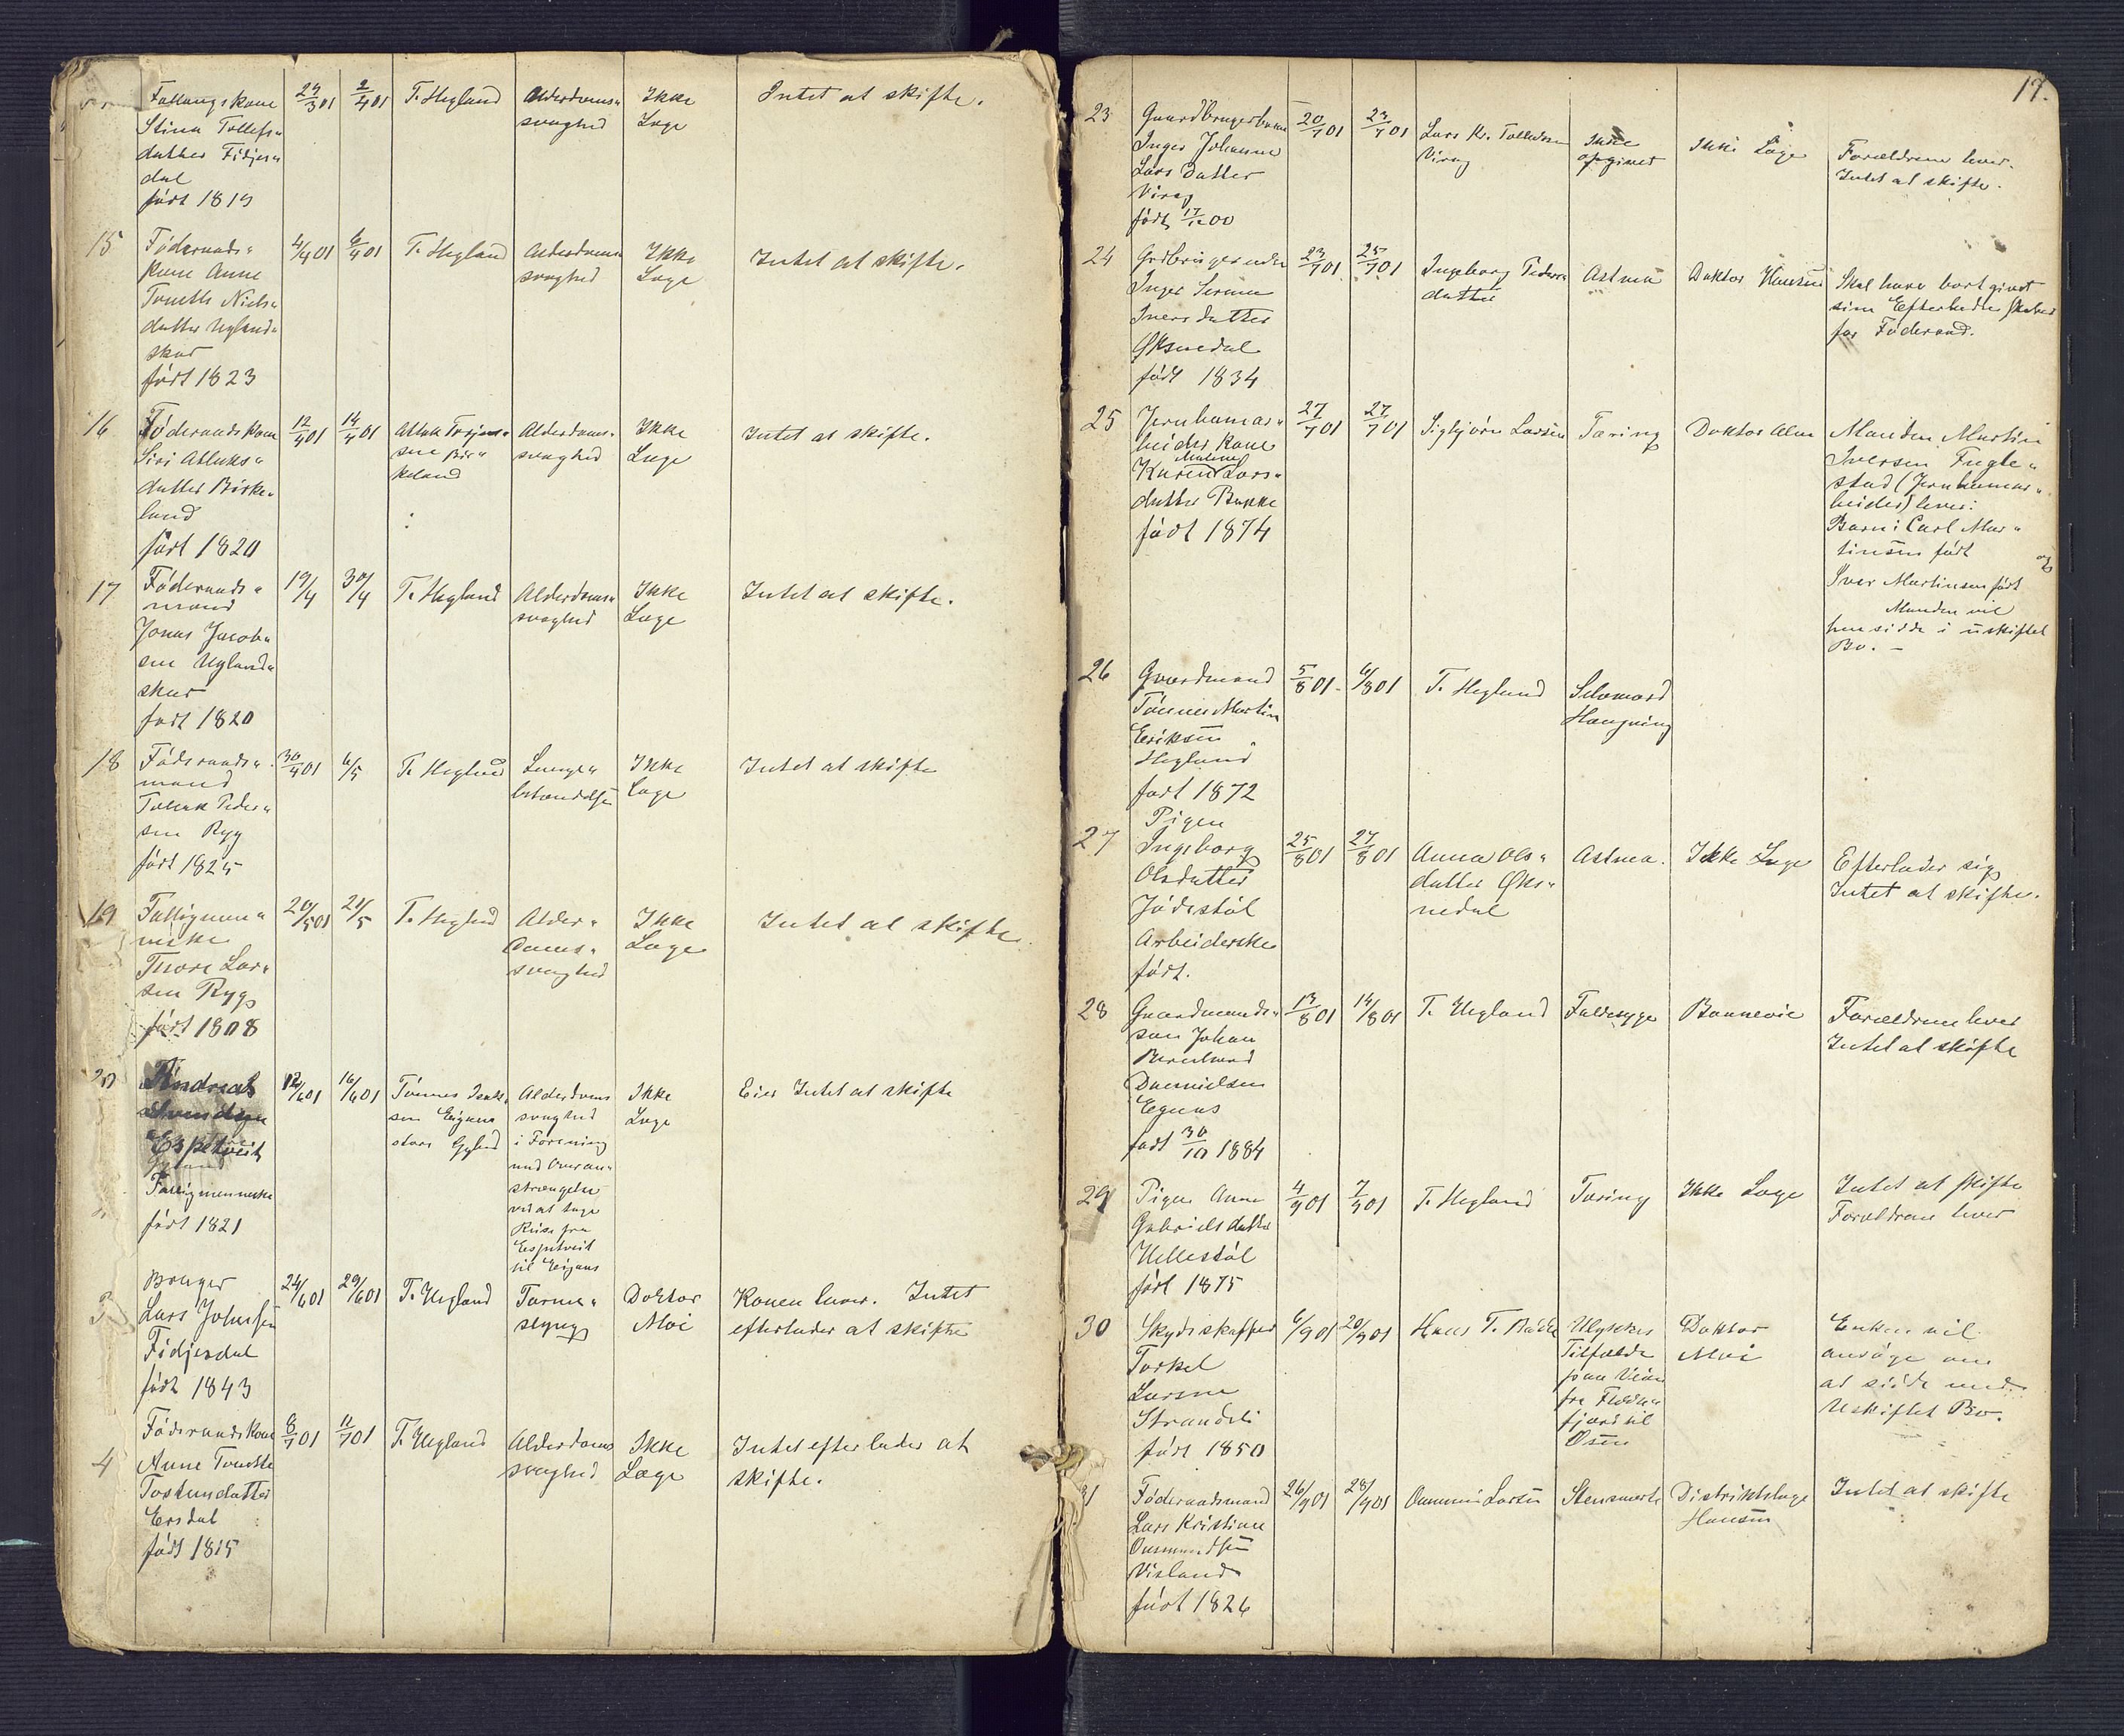 Stina Tollefs„
datter Fidjes„
dal
født 1819
24/3 01
2/4 01
T. Hegland
Alderdoms„
svaghed
Ikke
Læge
Intet at skifte.
15
Føderaads„
kone Anne
Tonette Niels„
datter Ugland„
skar
født 1823
4/4 01
6/4 01
T. Hegland
Alderdoms„
svaghed
Ikke
Læge
Intet at skifte.
16
Føderaadskone
Siri Atlaks„
datter Birke„
land
født 1820
12/4 01
14/4 01
Atlak
Bir„
keland
Alderdoms„
svaghed
Ikke
Læge
Intet at skifte.
17
Føderaads„
mand
Jonas Jacob„
sen Ugland„
skar
født 1820
19/4
30/4
T. Hegland
Alderdoms„
svaghed
Ikke
Læge
Intet at skifte.
18
Føderaads„
mand
Peder„
sen Ryg
født 1825
30/4 01
6/5
T. Hegland
Lunge„
betændelse
Ikke
Læge
Intet at skifte
19
Fattigmen„
niske
Tore Lar„
sen Ryg
født 1808
20/5 01
21/5
T. Hegland
Alder„
doms„
svaghed
Ikke
Læge
Intet at skifte
20
Andreas
Espetveit
Gyland
Fattigmenneske
født 1821
12/6 01
16/6 01
Tønnes
sen Eigjans
Gyland
Alderdoms
svaghed
i Forening
med Overan„
strængelse
ved at tage
Reise fra
Espetveit
til Eigjans
Ikke
Læge
Eier Intet at skifte
Bruger
Lars Johnsen
Fidjesdal
født 1843
24/6 01
29/6 01
T. Hegland
Tarm„
slyng
Doktor
Moi
Konen lever. Intet
efterlader at skifte
4
Føderaadskone
Anne Tonette
Tostensdatter
Ersdal
født 1815
8/7 01
11/7 01
T. Hegland
Alderdoms
svaghed
Ikke
Læge
Intet efterlader at
skifte.
17.
23
Gaardbrugerbarn
Inger Johanne
Lars Datter
Virag
født 17/12 00
20/7 01
23/7 01
Lars Kr. Tollaksen
Virag
Ikke
opgivet
Ikke Læge
Forældrene lever.
Intet at skifte.
24
Inger Serine
Iversdatter
Øksnedal
født 1834
23/7 01
25/7 01
Ingeborg Peders
datter
Astma
Doktor Hansen
Skal have bortgivet
sine
for Føderaad.
25
Jernbanear„
beiderkone
Karen Malene Lars„
datter Bakke
født 1874
27/7 01
27/7 01
Sigbjørn Larsen
Tæring
Doktor
Manden Martin
Iversen Fugle„
stad (Jernbanear„
beider) lever.
Barn: Carl Mar„
tinsen født og
Iver Martinsen født
Manden vil
hensidde i uskiftet
Bo. —
26
Gaardmand
Tønnes Martin
Eriksen
Hegland
født 1872
5/8 01
6/8 01
T. Hegland
Selvmord
Hængning
27
Pigen
Ingeborg
Olsdatter
Jødestøl
Arbeiderske
født.
25/8 01
27/8 01
Anna Ols„
datter Øks„
nedal
Astma.
Ikke Læge
Efterlader sig
Intet at skifte.
28
Gaardmands„
søn Johan
Bernhard
Danielsen
Egenes
født 30/10 1884
13/8 01
14/8 01
T. Hegland
Faldesyge
Bonnevie
Forældrene lever
Intet at skifte
29
Pigen Anne
Gabrielsdatter
Hellestøl
født 1875
4/9 01
7/9 01
T. Hegland
Tæring
Ikke Læge
Intet at skifte
Forældrene lever
30
Skydsskaffer
Torkel
Larsen
Strandli
født 1850
6/9 01
20/9 01
Hans T.
Ulykkes
Tilfælde
paa Veien
fra Fedde„
fjord til
Osen
Doktor
Moi
Enken vil
ansøge om
at sidde med
Uskiftet Bo.
31
Føderaadsmand
Lars Kristian
Osmundsen
Visland
født 1826
26/9 01
28/9 01
Osmun Larsen
Stensmerte
Distriktslæge
Hansen
Intet at skifte